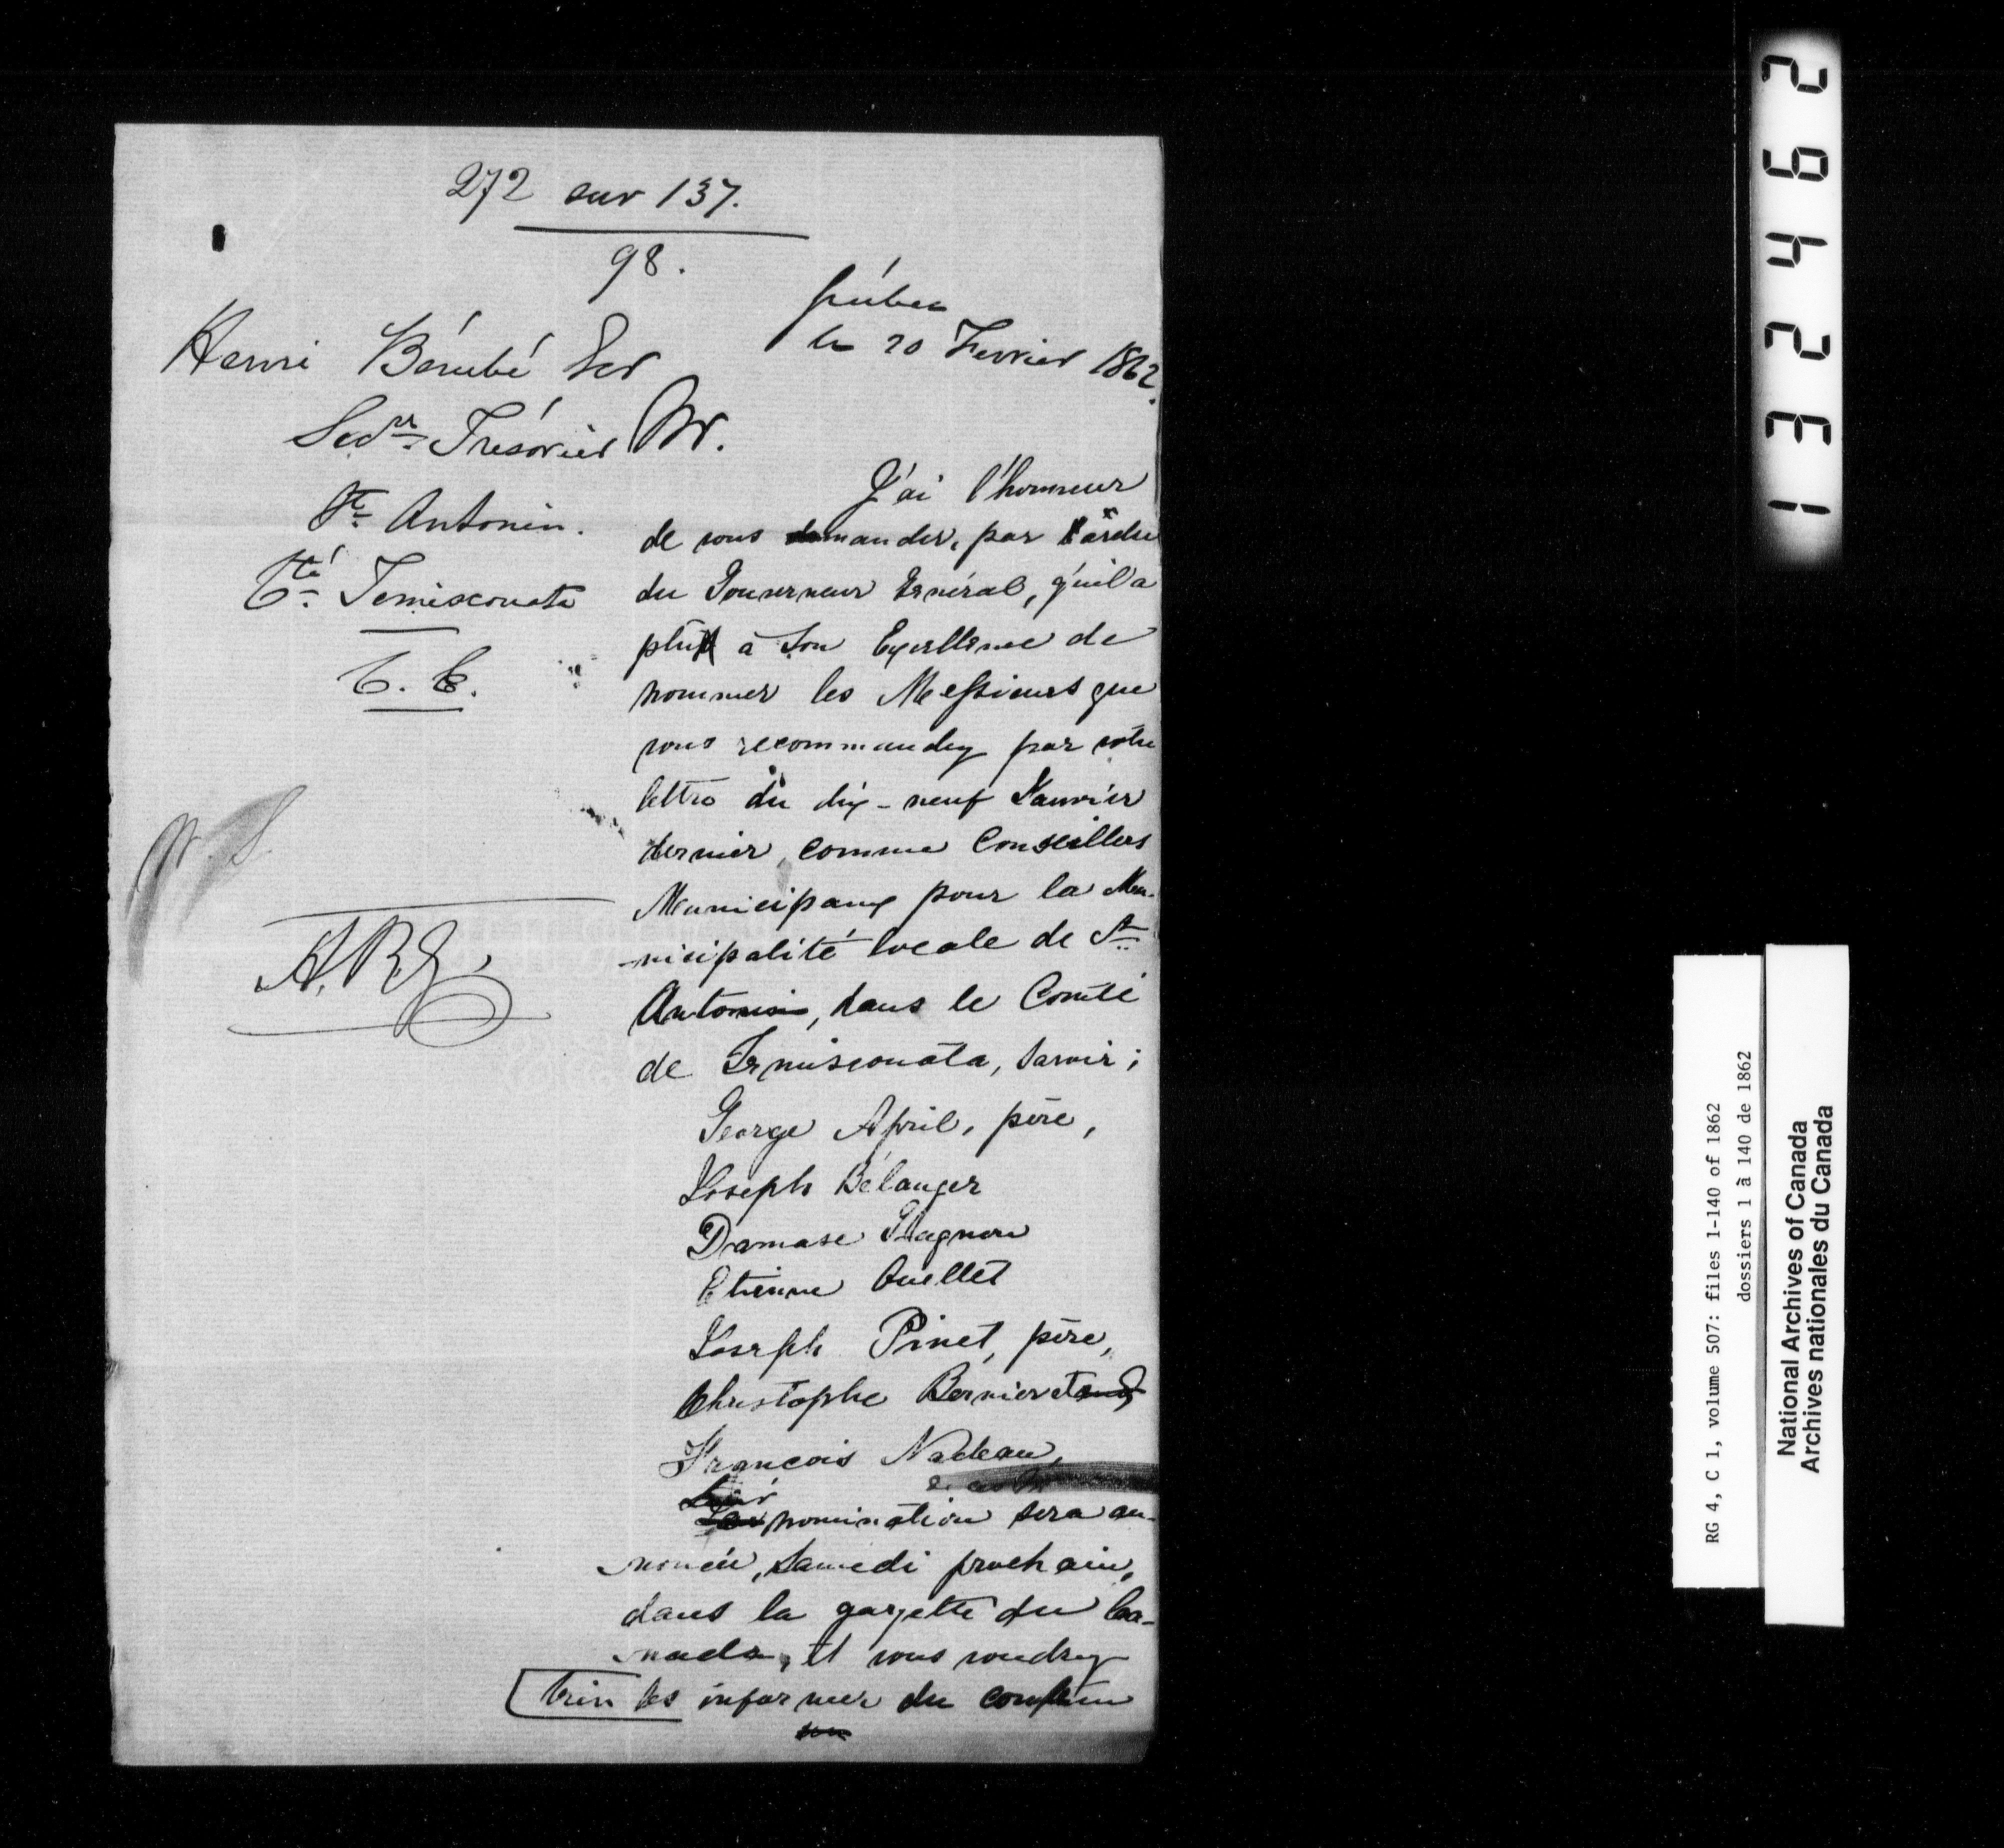 272 sur 137.
98.
Québec
le 20 Fevrier 1862.
Henri Bérubé Ecr
Secre Trésorier
St. Antonin.
Cté Temisconata
C. E.
A. R.
Mr.
J'ai l'honneur
de vous mander, par ordre
du Gouverneur Général, qu'il a
plu à Son Excellence de
nommer les Messieurs que
vous recommandez par votre
lettre du dix-neuf Janvier
dernier, comme Conseillers
Municipaux pour la Mu-
-nicipalité locale de St.
Antonin, dans le Comté
de Temisconata, savoir;
George April, père,
Joseph Bélanger
Damase Gagnon
Etienne Ouellet
Joseph Pinet, père,
Christophe Bernier et
François Nadeau,
Leur nomination sera an-
noncée, Samedi prochain,
dans la gazette du Ca-
nada, et vous voudrez
bien les informer du contenu
RG 4, C 1, volume 507: files 1-140 of 1862
dossiers 1 à 140 de 1862
National Archives of Canada
Archives nationales du Canada
132462